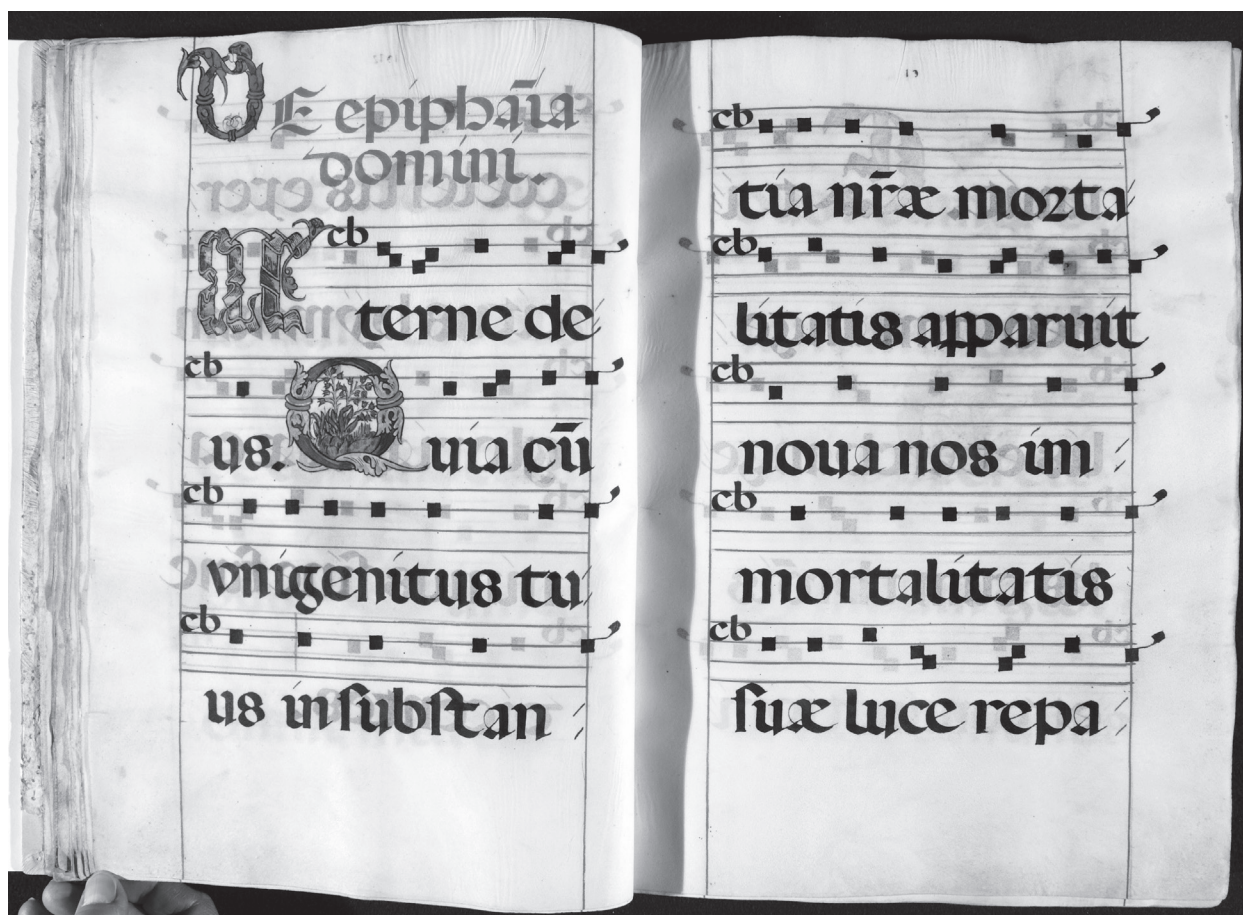 DE epiphāia
domini.
cb
Æterne de
cb
us. Quia cū
cb
vnigenitus tu
cb
us in substan
cb
tia nr̄æ morta
cb
litatis apparuit
cb
noua nos im
cb
mortalitatis
cb
suæ luce repa